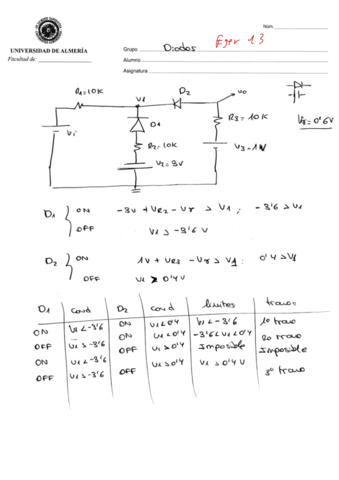 Núm.
UNIVERSIDAD DE ALMERÍA
Facultad de:
Grupo Diodos Ejer 13
Alumno
Asignatura
R1=10K
V1
D2
vo
D1
R3=10K
Vγ=0'6V
Vi
R2=10K
V2=3V
V3=1V
D1 ON -3V + VR2 - Vγ > V1 ; -3'6 > V1
OFF V1 > -3'6 V
D2 ON 1V + VR3 - Vγ > V1 : 0'4 > V1
OFF V1 ≥ 0'4V
D1 cond D2 cond límites tramos
ON V1 < -3'6 ON V1 < 0'4 V1 < -3'6 1º tramo
OFF V1 > -3'6 ON V1 < 0'4 -3'6 < V1 < 0'4 2º tramo
ON V1 < -3'6 OFF V1 > 0'4 Imposible Imposible
OFF V1 > -3'6 OFF V1 > 0'4 V1 > 0'4 V 3º tramo